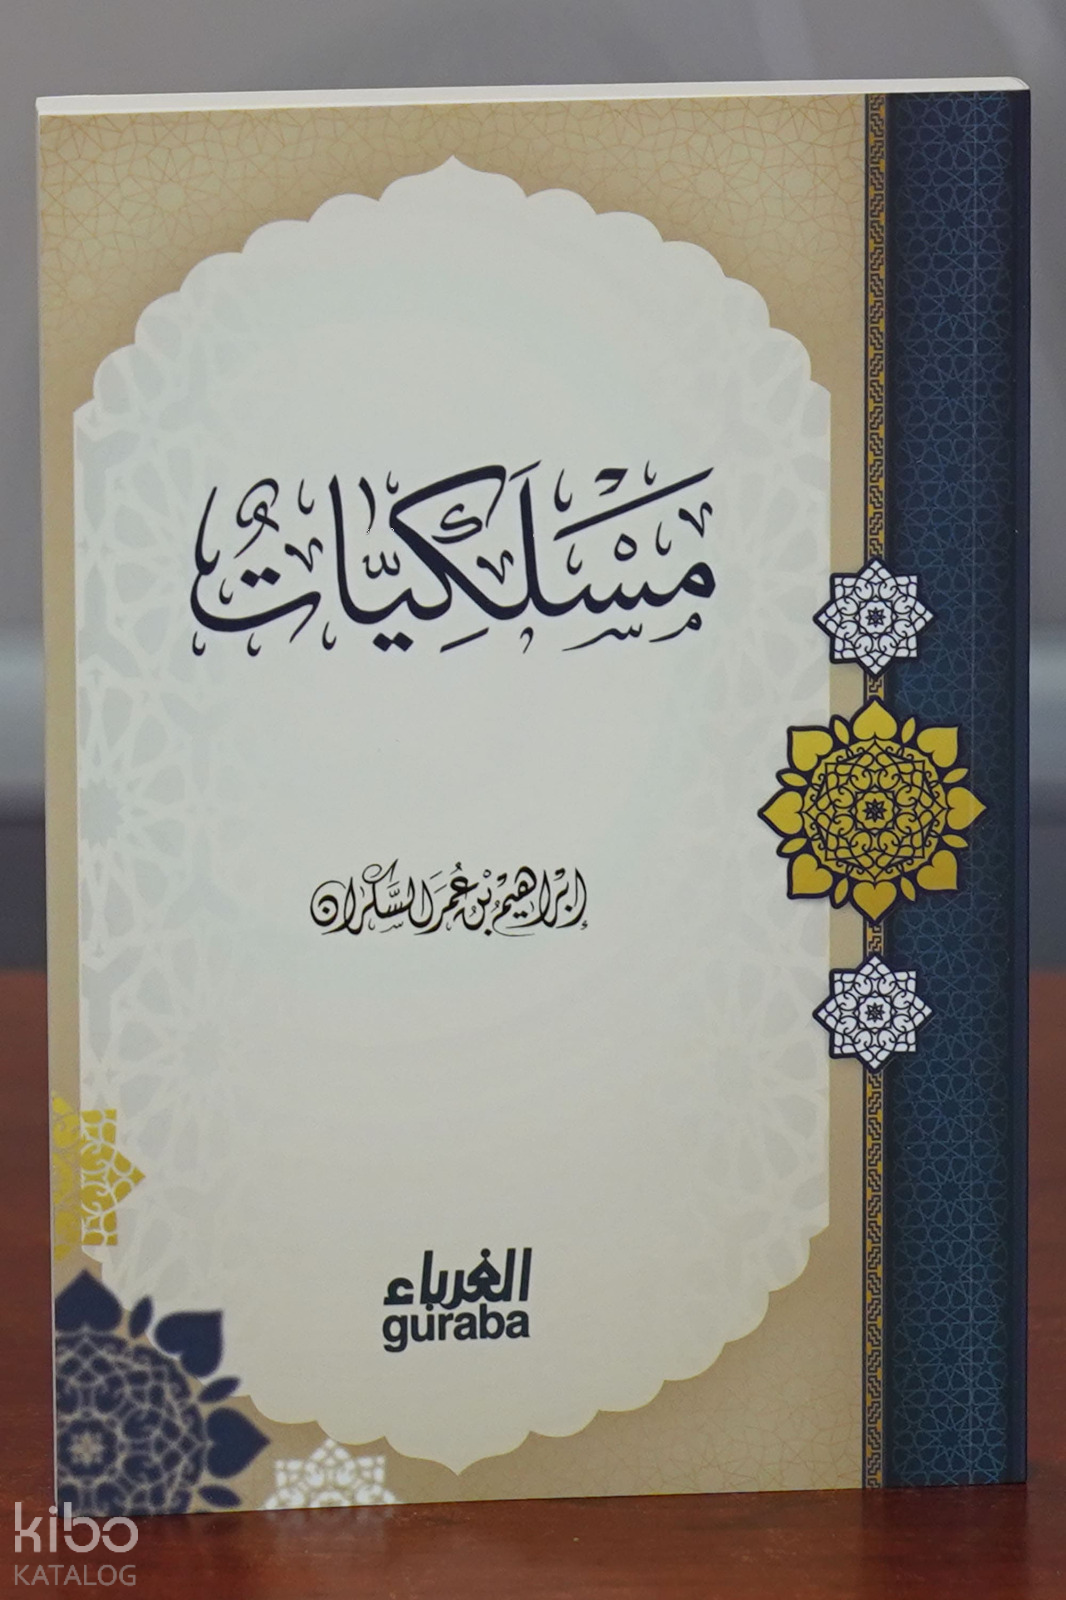 مَسْلَكِيَّاتٌ
إبْرَاهِيْمُ بْنُ عُمَرَ السَّكْرَان
الغرباء
guraba
kibo
KATALOG